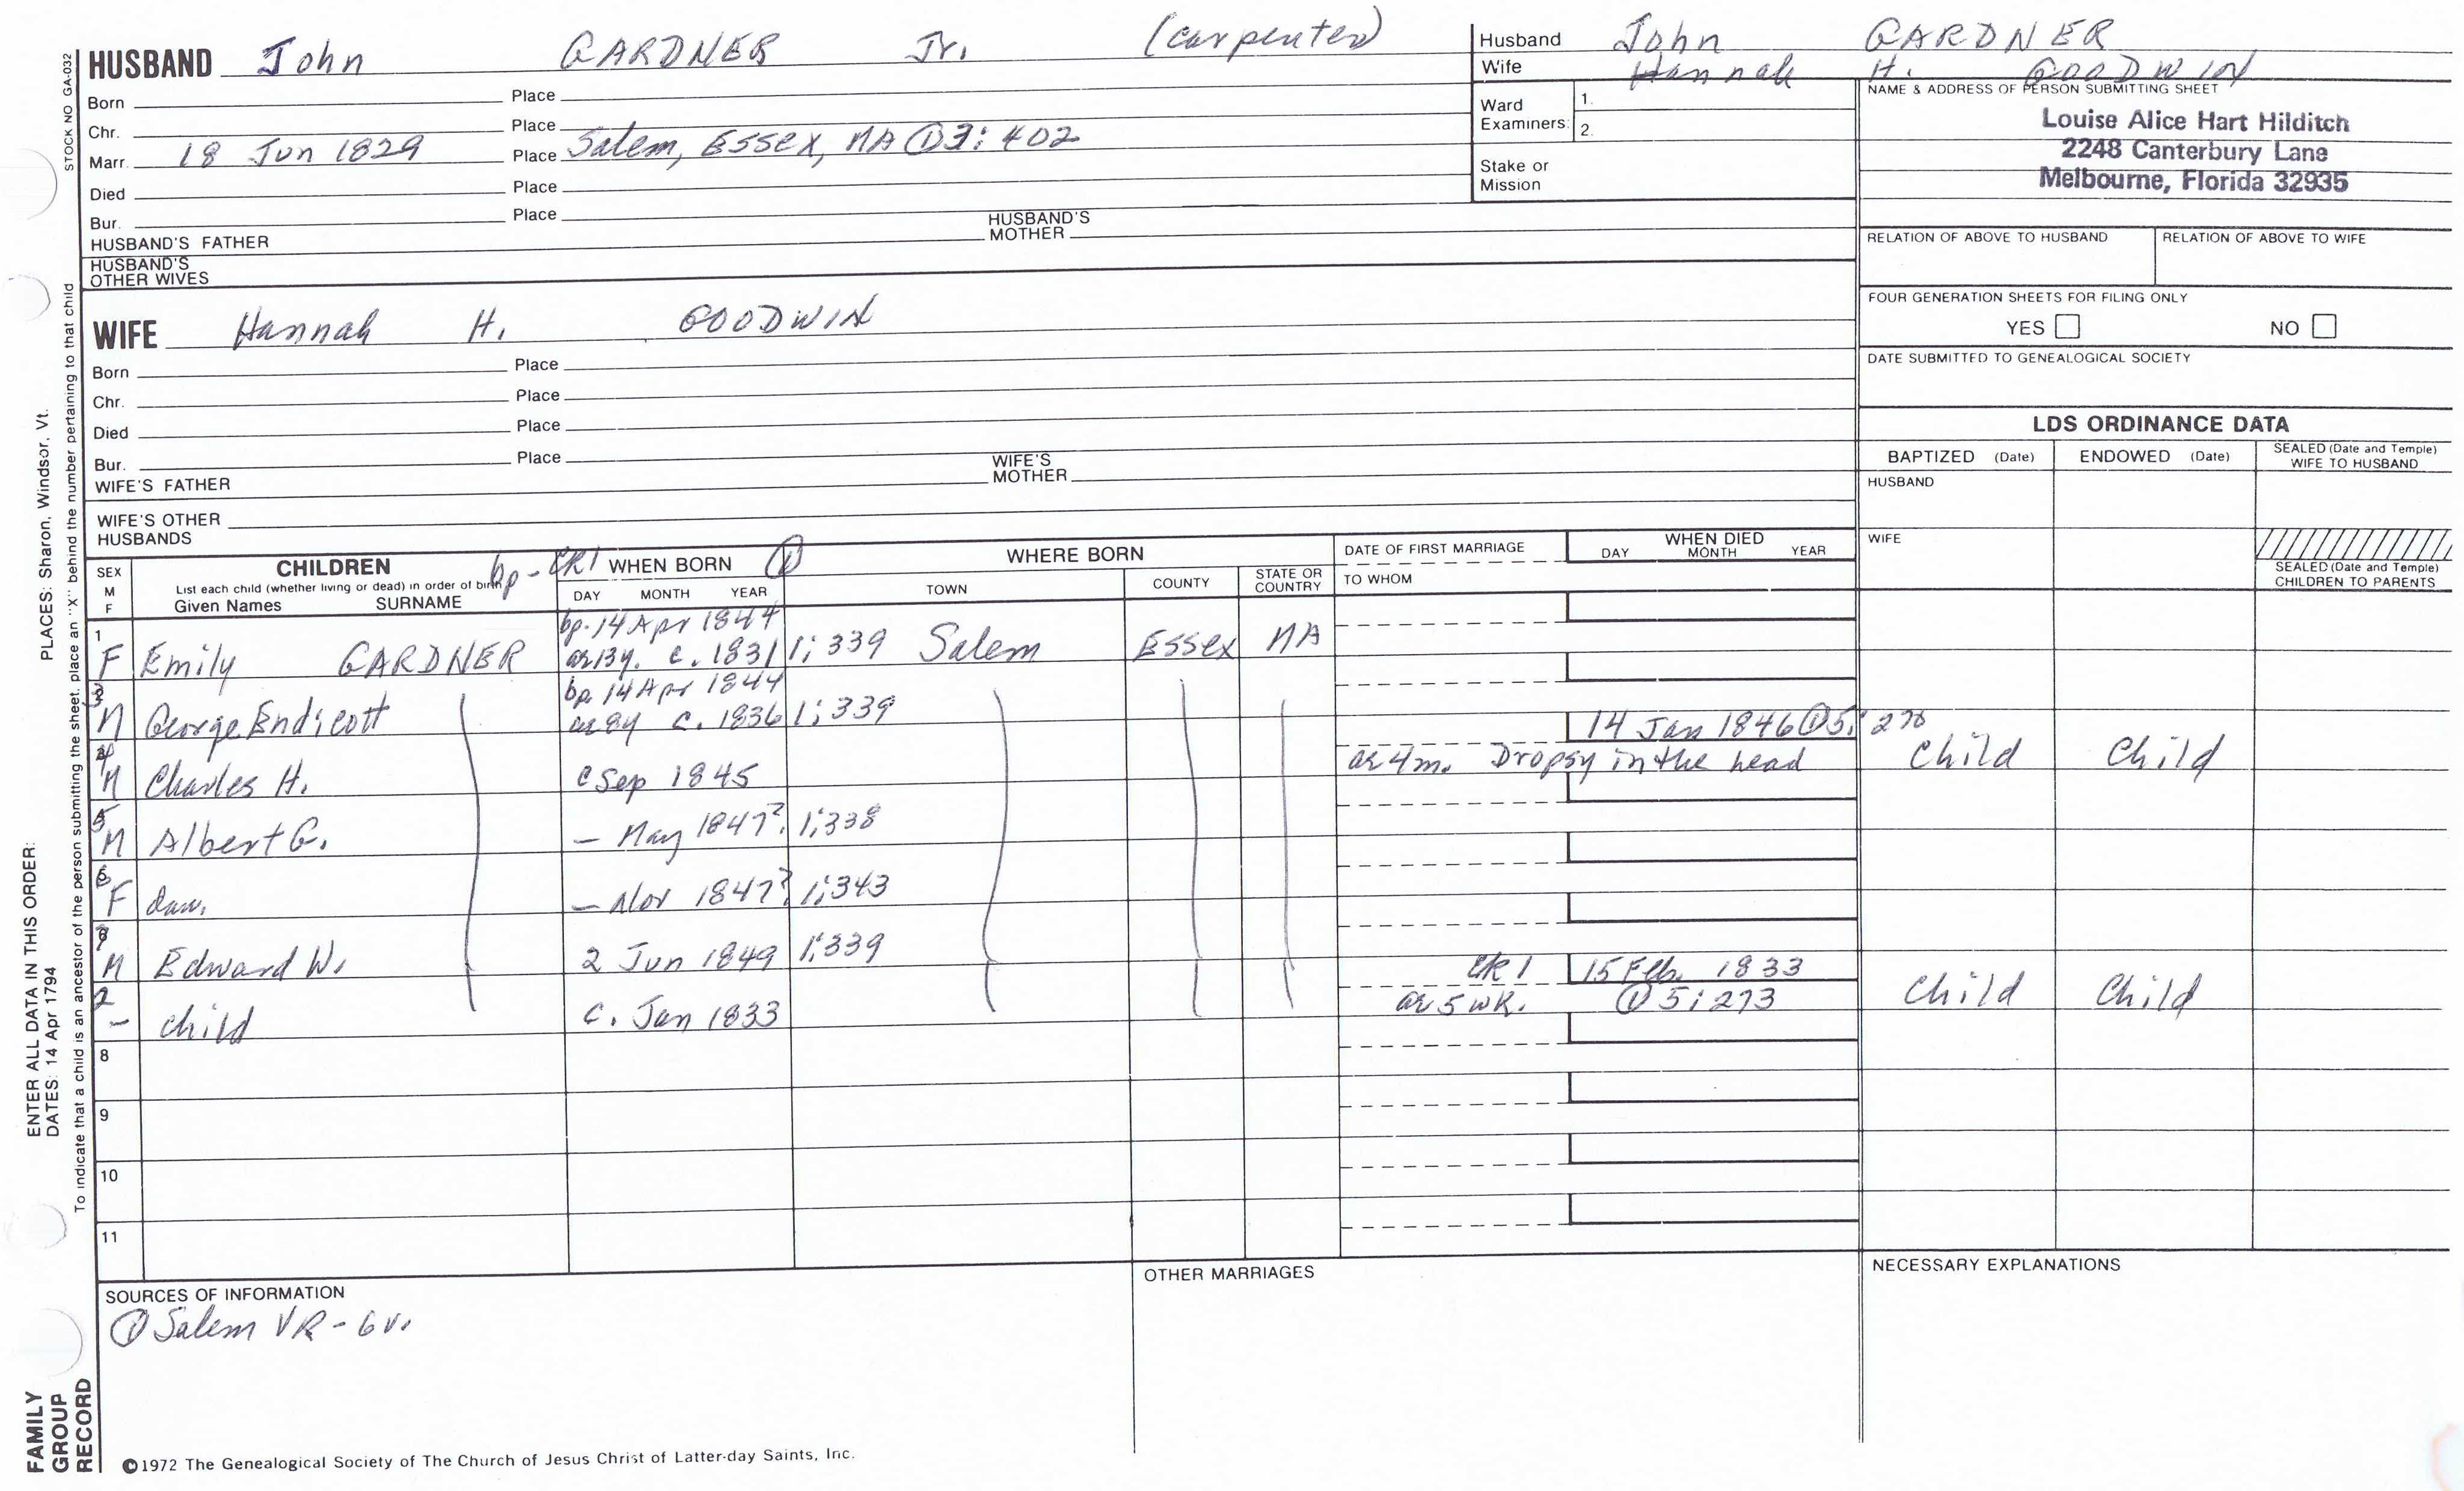 HUSBAND John GARDNER Jr. (carpenter)
Born Place
Chr. Place
Marr. 18 Jun 1829 Place Salem, Essex, MA ① 3: 402
Died Place
Bur. Place
HUSBAND'S FATHER HUSBAND'S MOTHER
HUSBAND'S OTHER WIVES
WIFE Hannah H. GOODWIN
Born Place
Chr. Place
Died Place
Bur. Place
WIFE'S FATHER WIFE'S MOTHER
WIFE'S OTHER HUSBANDS
Husband John GARDNER
Wife Hannah H. GOODWIN
Ward Examiners: 1.
2.
Stake or Mission
NAME & ADDRESS OF PERSON SUBMITTING SHEET
Louise Alice Hart Hilditch
2248 Canterbury Lane
Melbourne, Florida 32935
RELATION OF ABOVE TO HUSBAND RELATION OF ABOVE TO WIFE
FOUR GENERATION SHEETS FOR FILING ONLY
YES NO
DATE SUBMITTED TO GENEALOGICAL SOCIETY
LDS ORDINANCE DATA
BAPTIZED (Date) ENDOWED (Date) SEALED (Date and Temple) WIFE TO HUSBAND
HUSBAND
WIFE
SEALED (Date and Temple) CHILDREN TO PARENTS
SEX M F
CHILDREN
List each child (whether living or dead) in order of birth
Given Names SURNAME
bp-CR1 WHEN BORN ①
DAY MONTH YEAR
WHERE BORN
TOWN COUNTY STATE OR COUNTRY
DATE OF FIRST MARRIAGE
TO WHOM
WHEN DIED
DAY MONTH YEAR
1 bp. 14 Apr 1844
F Emily GARDNER ae 13y. c. 1831 1: 339 Salem Essex MA
3 bp. 14 Apr 1844
M George Endicott ae 8y c. 1836 1: 339
4 14 Jan 1846 ① 5: 270
M Charles H. c Sep 1845 ae 4m. Dropsy in the head Child Child
5
M Albert G. — May 1847? 1: 338
6
F dau. — Nov 1847? 1: 343
7
M Edward W. 2 Jun 1849 1: 339
2 CR1 15 Feb. 1833
- child c. Jan 1833 ae 5 wk. ① 5: 273 Child Child
8
9
10
11
SOURCES OF INFORMATION
① Salem VR - 6 v.
OTHER MARRIAGES
NECESSARY EXPLANATIONS
©1972 The Genealogical Society of The Church of Jesus Christ of Latter-day Saints, Inc.
STOCK NO GA-032
To indicate that a child is an ancestor of the person submitting the sheet, place an "X" behind the number pertaining to that child
PLACES: Sharon, Windsor, Vt.
ENTER ALL DATA IN THIS ORDER:
DATES: 14 Apr 1794
FAMILY
GROUP
RECORD